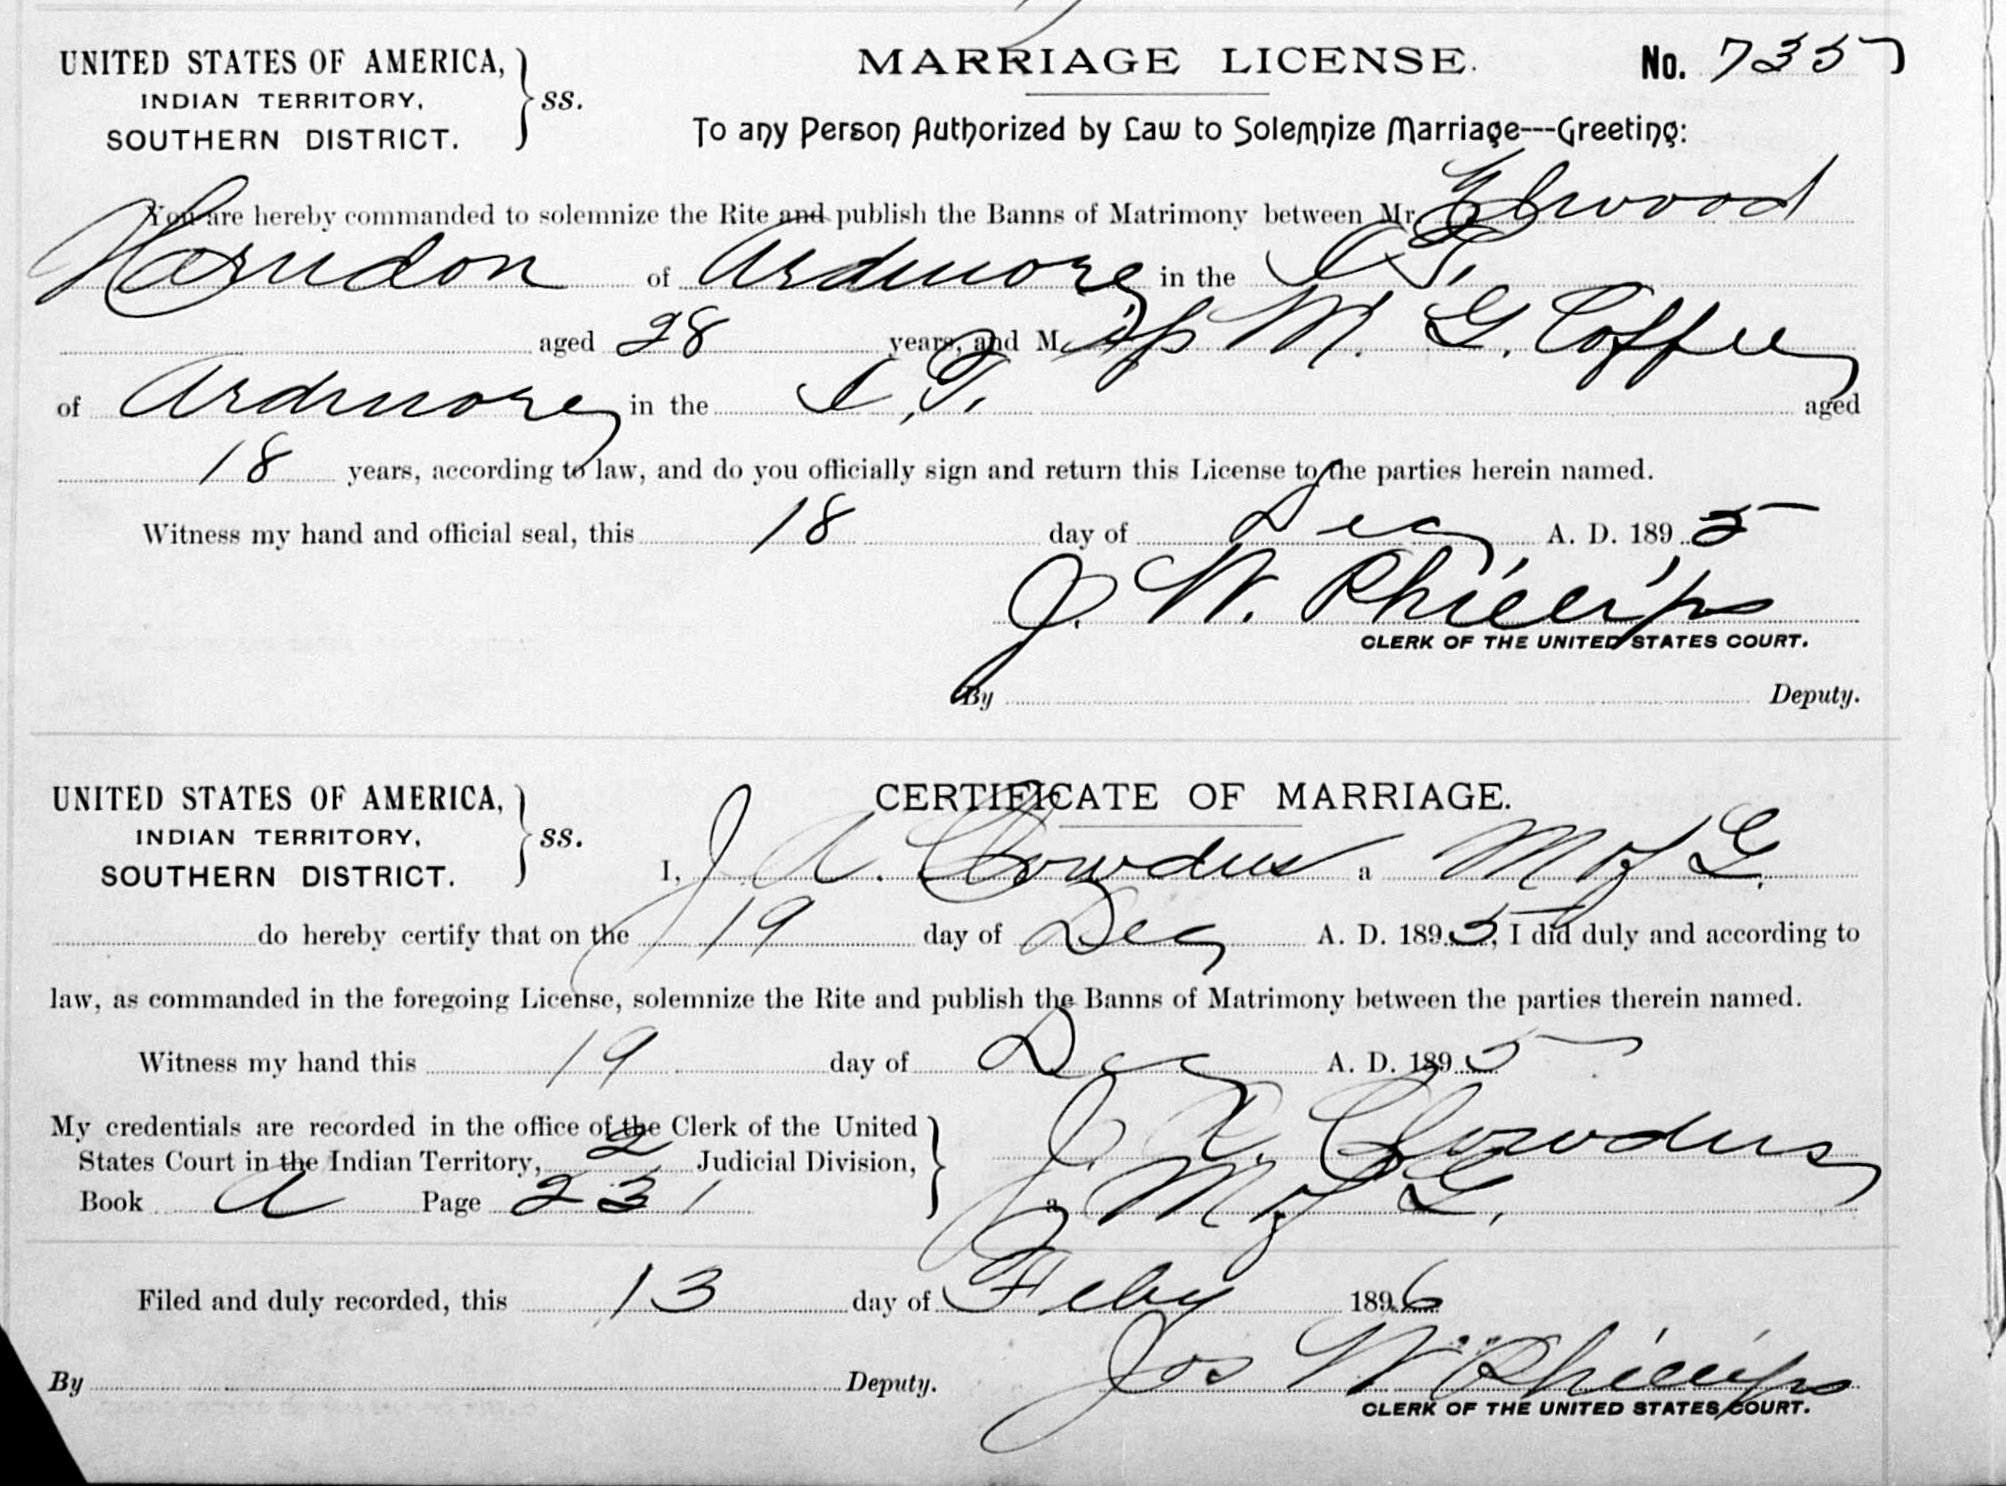 UNITED STATES OF AMERICA,
INDIAN TERRITORY,
SOUTHERN DISTRICT.
ss.
MARRIAGE LICENSE.
No. 7355
To any Person Authorized by Law to Solemnize Marriage---Greeting:
You are hereby commanded to solemnize the Rite and publish the Banns of Matrimony between Mr. Elwood
Herndon of Ardmore in the I.T.
aged 28 years, and Miss M. G. Coffee
of Ardmore in the I.T. aged
18 years, according to law, and do you officially sign and return this License to the parties herein named.
Witness my hand and official seal, this 18 day of Dec A. D. 1895
J. W. Phillips
CLERK OF THE UNITED STATES COURT.
By Deputy.
UNITED STATES OF AMERICA,
INDIAN TERRITORY,
SOUTHERN DISTRICT.
ss.
CERTIFICATE OF MARRIAGE.
I, J. A. Clowdus a M of G.
do hereby certify that on the 19 day of Dec A. D. 1895, I did duly and according to
law, as commanded in the foregoing License, solemnize the Rite and publish the Banns of Matrimony between the parties therein named.
Witness my hand this 19 day of Dec A. D. 1895
My credentials are recorded in the office of the Clerk of the United
States Court in the Indian Territory, 2 Judicial Division,
Book A Page 231
J. A. Clowdus
a M of G.
Filed and duly recorded, this 13 day of Feby 1896
Jos W Phillips
By Deputy.
CLERK OF THE UNITED STATES COURT.